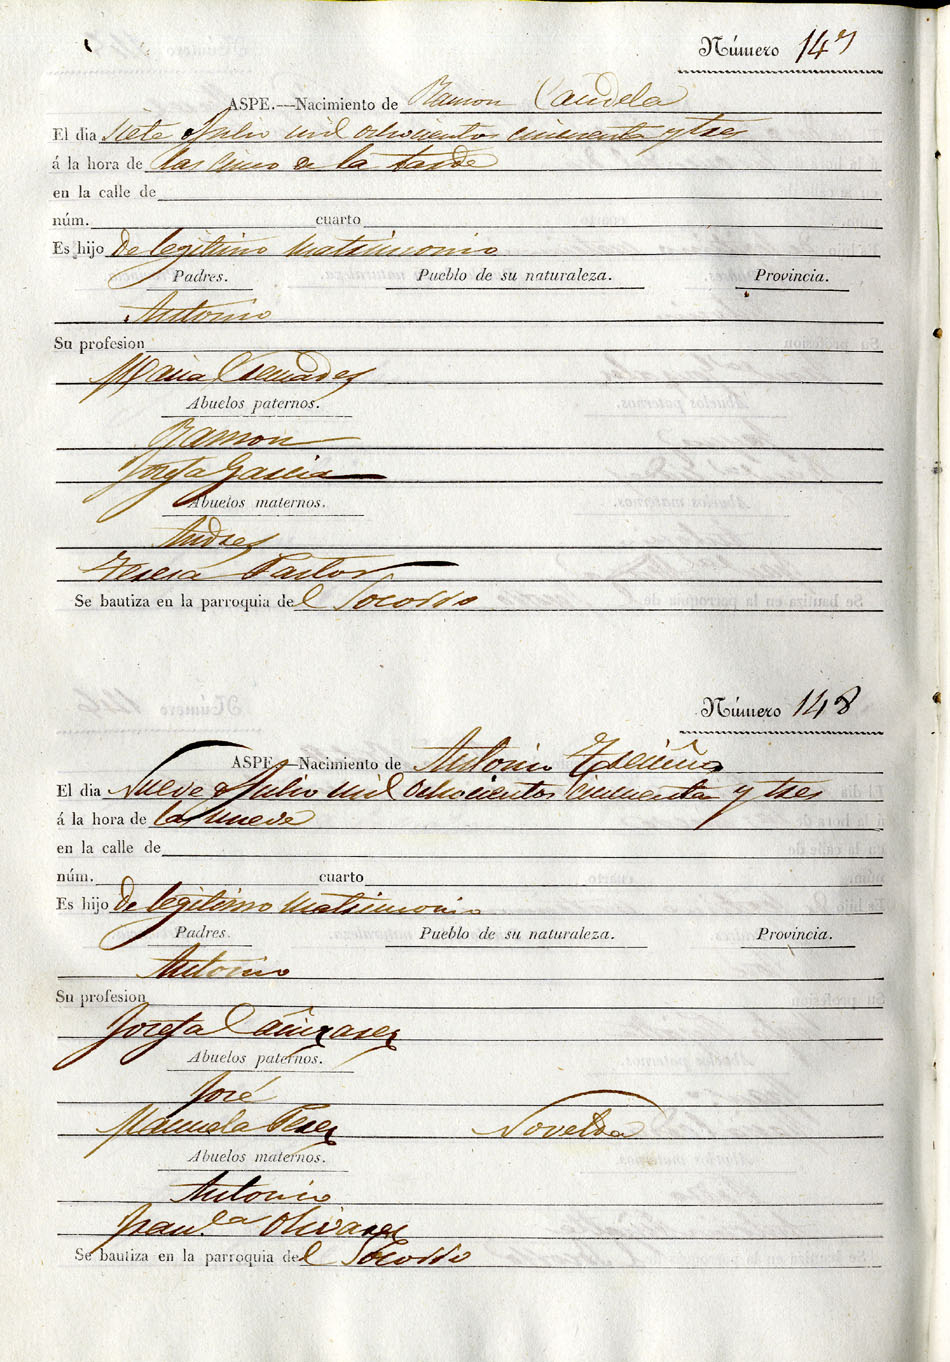 Número 147
ASPE.—Nacimiento de Ramon Candela
El dia siete Julio mil ochocientos cincuenta y tres
á la hora de las cinco de la tarde
en la calle de
núm. cuarto
Es hijo de legitimo matrimonio
Padres. Pueblo de su naturaleza. Provincia.
Antonio
Su profesion
Maria Cremades
Abuelos paternos.
Ramon
Josefa Garcia
Abuelos maternos.
Andres
Teresa Pastor
Se bautiza en la parroquia del Socorro
Número 148
ASPE.—Nacimiento de Antonio
El dia Nueve Julio mil ochocientos cincuenta y tres
á la hora de las nueve
en la calle de
núm. cuarto
Es hijo de legitimo matrimonio
Padres. Pueblo de su naturaleza. Provincia.
Antonio
Su profesion
Josefa Cañizares
Abuelos paternos.
José
Manuela Perez Novelda
Abuelos maternos.
Antonio
Fran.ca Olivares
Se bautiza en la parroquia del Socorro